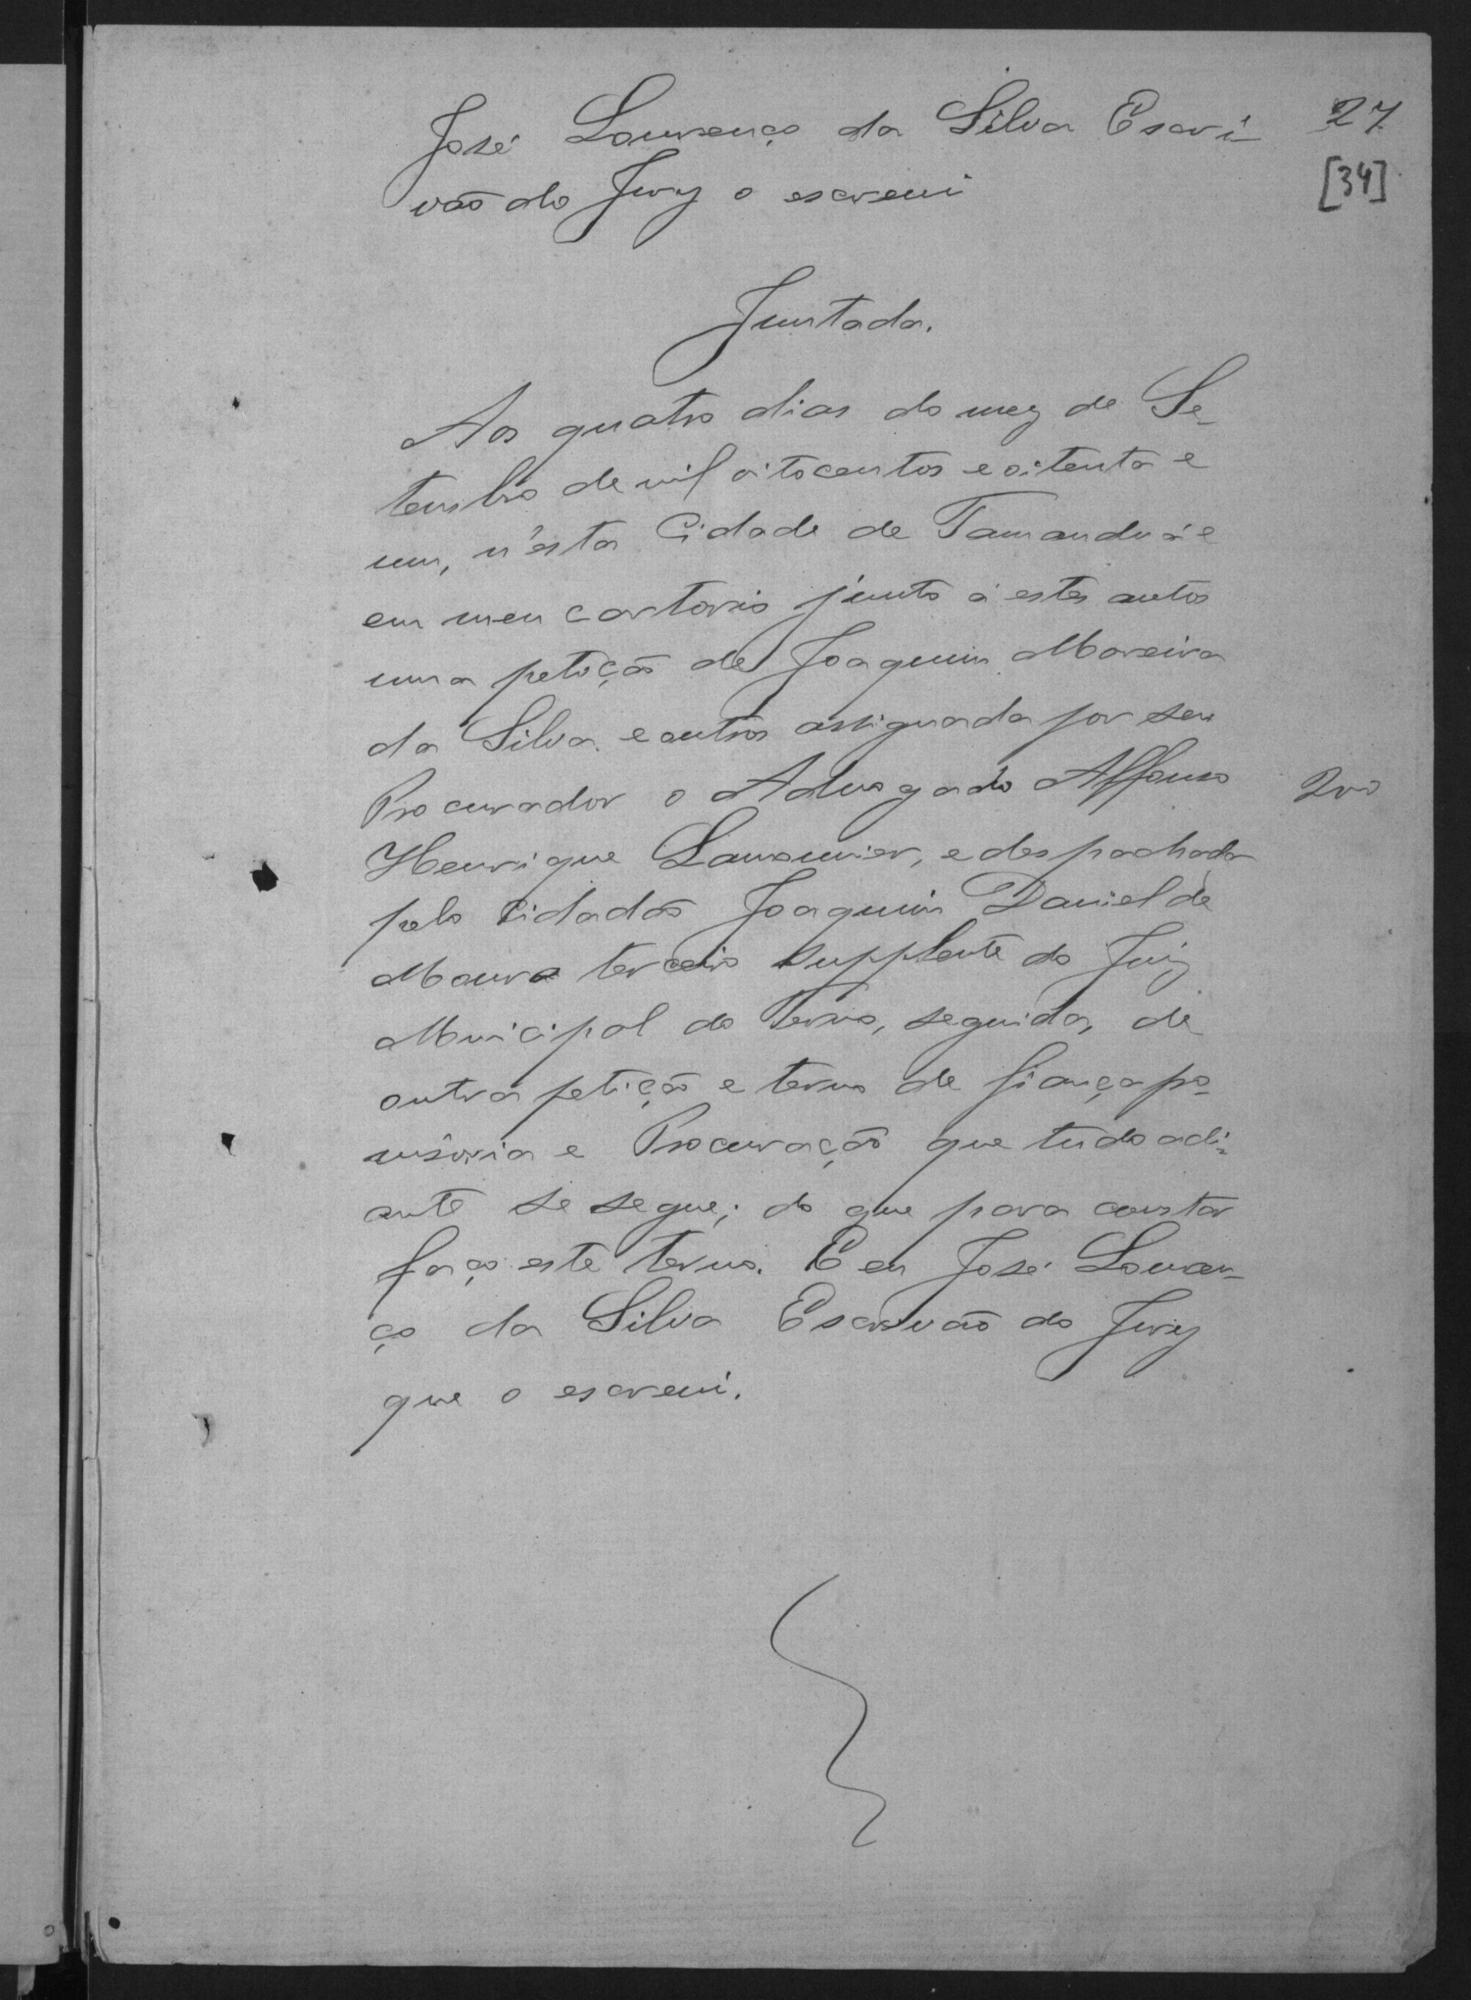 José Lourenço da Silva Escri- 27
vão do Jury o escrevi [34]
Juntada.
Aos quatro dias do mez de Se-
tembro de mil oitocentos e oitenta e
um, n'esta Cidade de Tamanduá e
em meu cartorio junto á estes autos
uma petição de Joaquim Moreira
da Silva e outros assignada por seu
Procurador o Advogado Affonso 200
Henrique Lamounier, e despachada
pelo Cidadão Joaquim Daniel de
Moura terceiro supplente do Juiz
Municipal do Termo, seguida, de
outra petição e termo de fiança pro-
visoria e Procuração que tudo adi-
ante se segue; do que para constar
faço este termo. E eu José Louren-
ço da Silva Escrivão do Jury
que o escrevi.